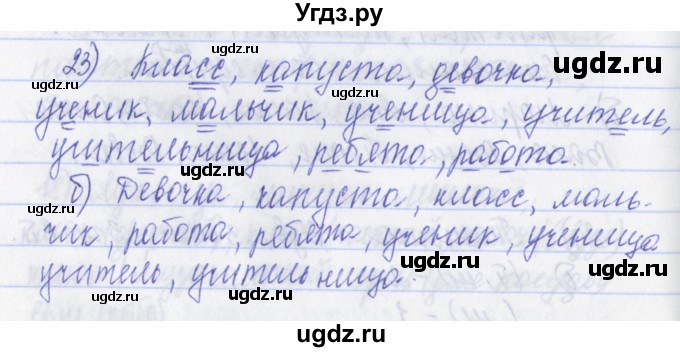 Угдз.ру
23) Класс, капуста, девочка,
ученик, мальчик, ученица, учитель,
учительница, ребята, работа.
б) Девочка, капуста, класс, маль-
чик, работа, ребята, ученик, ученица
учитель, учительница.
ugdz.ru
ugdz.ru
ugdz.ru
ugdz.ru
ugdz.ru
ugdz.ru
ugdz.ru
ugdz.ru
ugdz.ru
ugdz.ru
ugdz.ru
ugdz.ru
ugdz.ru